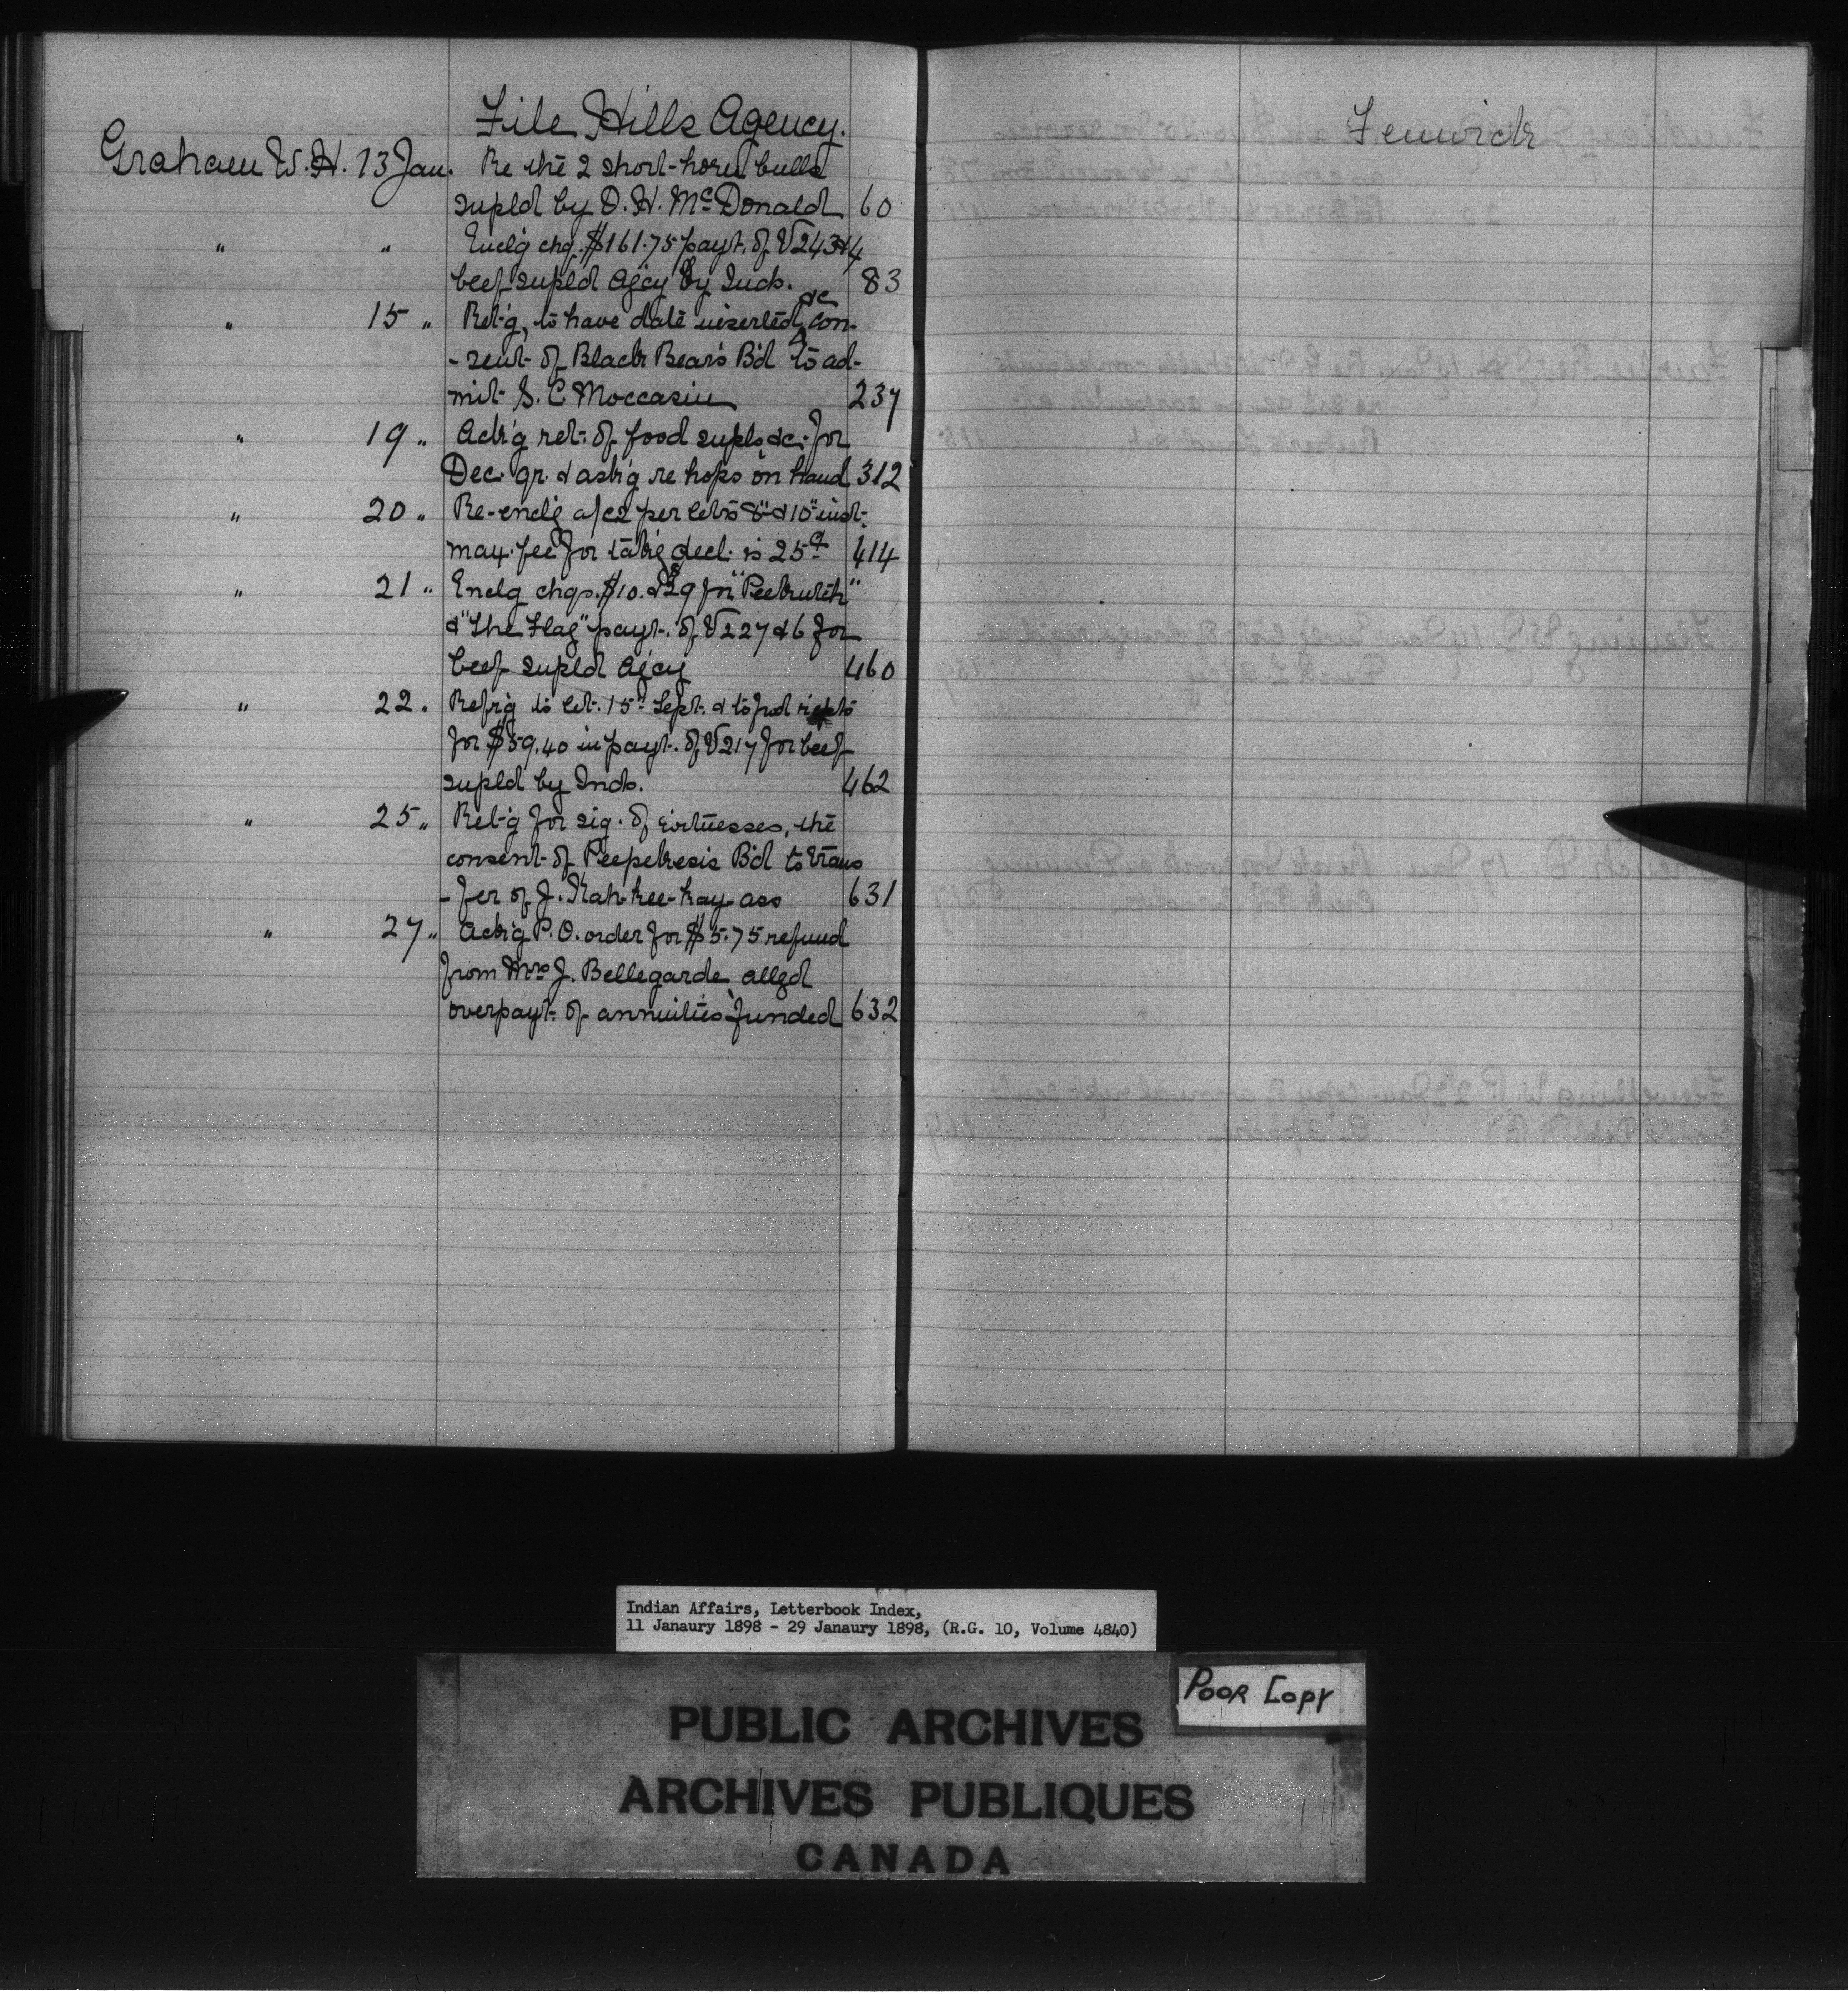 File Hills Agency.
Graham W. H. 13 Jan. Re the 2 short-horn bulls
supld by D. H. McDonald 60
" " Enclg chq. $161.75 payt. of V243&4
beef supld Agcy by Inds. 83
" 15 " Ret'g, to have date inserted, &c con-
- sent of Black Bear's B'd to ad-
mit S. C. Moccasin 237
" 19 " Ack'g ret. of food supls &c. for
Dec. qr. & ask'g re hops on hand 312
" 20 " Re-enclg a/cs per let's 8" & 10" inst.
max. fee for tak'g decl. is 25¢ 414
" 21 " Enclg chqs. $10. & $9 for
& "The Flag" payt. of V227 & 6 for
beef supld Agcy 460
" 22 " Refr'g to let. 15th Sept. & to fwd
for $59.40 in payt. of V217 for beef
supld by Inds. 462
" 25 " Ret'g for sig. of witnesses, the
consent of Peepekesis B'd to trans
- fer of J. Kah-kee-kay-ass 631
" 27 " Ack'g P.O. order for $5.75 refund
from Mrs J. Bellegarde alleged
overpayt. of annuities funded 632
Fenwick
Indian Affairs, Letterbook Index,
11 Janaury 1898 - 29 Janaury 1898, (R.G. 10, Volume 4840)
POOR COPY
PUBLIC ARCHIVES
ARCHIVES PUBLIQUES
CANADA